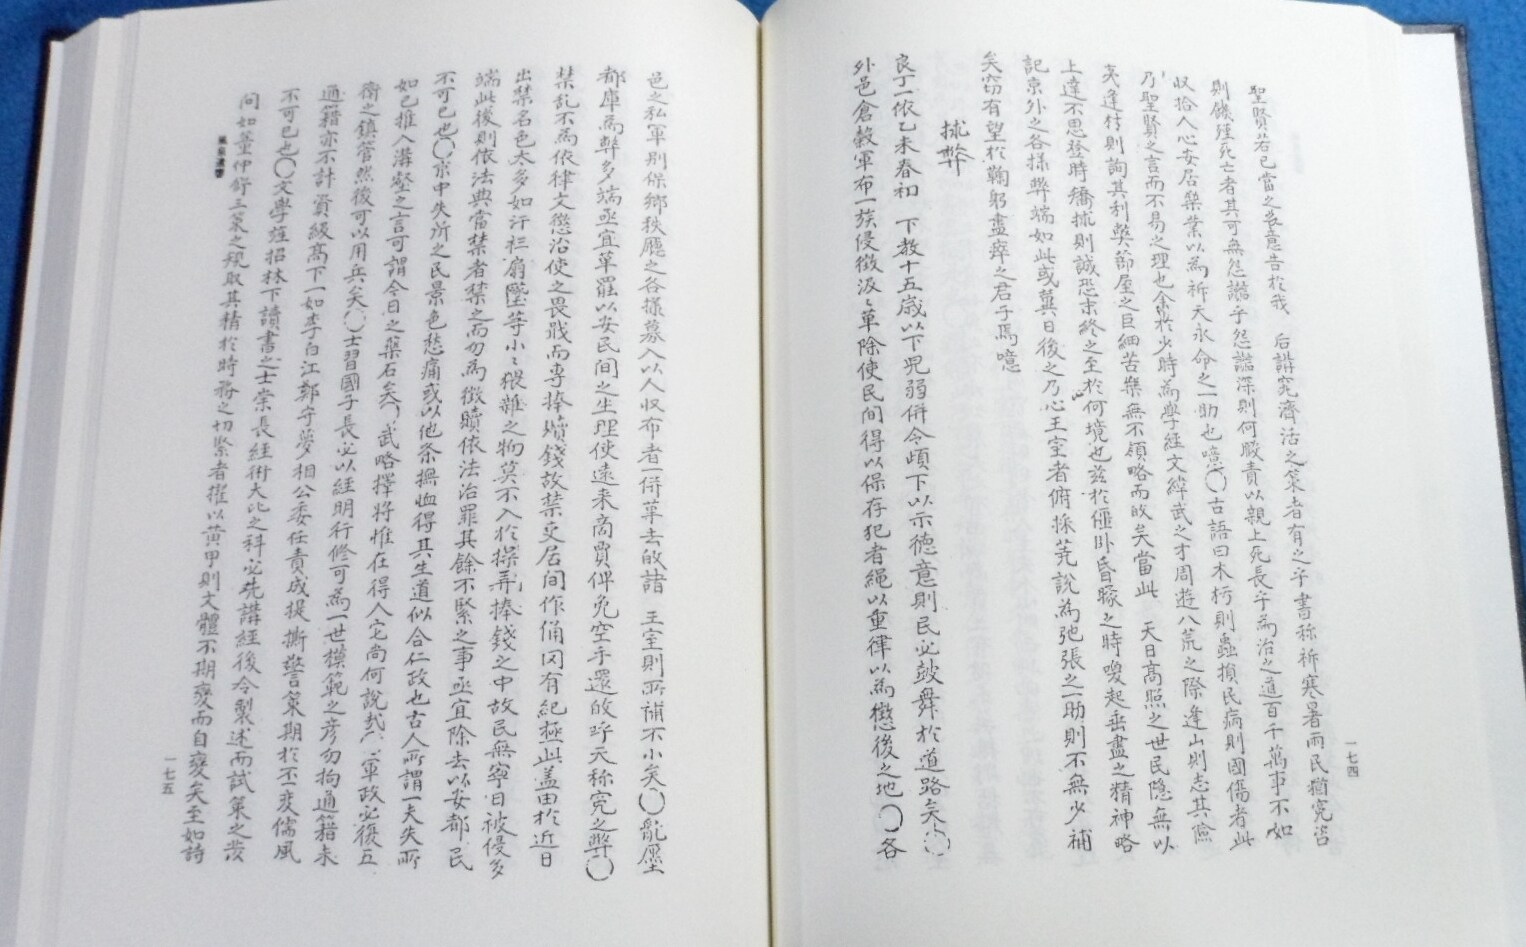 聖賢若已當之哉意告於我 后講究濟活之策者有之乎書称祈寒暑雨民猶寃咨
則饑殣死亡者其可無怨讟乎怨讟深則何職責以親上死長乎為治之道百千萬事不如
収拾人心安居樂業以為祈天永命之一助也噫○古語曰木朽則蟲損民病則國傷者此
乃聖賢之言而不易之理也余於少時為學經文緯武之才周遊八荒之際逢山則志其險
夷逢村則詢其利獘節屋之巨細苦樂無不領略而攸矣當此 天日髙照之世民隐無以
上達不思登時矯捄則誠恐末終之至於何境也玆於僵卧昏矇之時喚起垂盡之精神略
記京外之各様獘端如此或冀日後之乃心王室者俯採芼說為弛張之一助則不無少補
矣窃有望於鞠躬盡瘁之君子焉噫
捄弊
良丁一依乙未春初 下教十五歳以下児弱併令頉下以示德意則民必鼓舞於道路矣○
外邑倉穀軍布一族侵徵汲〻革除使民间得以保存犯者繩以重律以為懲後之地○各
一七四
邑之私軍别保鄉秩廳之各様募入以人収布者一併革去攸諸 王室則所補不小矣○亂廛
都庫為弊多端亟宜革罷以安民间之生理使遠来商賈俾免空手還攸呼天称寃之弊○
禁乱不為依律文懲治使之畏戢而専捧贖錢故禁吏居间作俑冈有紀極此盖由於近日
出禁名色太多如汗衫扇墜等小〻猥雜之物莫不入於操弄捧錢之中故民無寧日被侵多
端此後則依法典當禁者禁之而勿為徵贖依法治罪其餘不緊之事亟宜除去以安都民
不可已也○京中失所之民景色愁痛或以他条撫恤得其生道似合仁政也古人所謂一夫失所
如已推入溝壑之言可謂今日之藥石矣○武略擇將惟在得人它尚何說哉○軍政必復五
衛之鎮管然後可以用兵矣○士習國子長必以經明行修可為一世模範之彦勿拘通籍未
通籍亦不計資級髙下一如李白江鄭守夢相公委任責成提撕警策期於丕变儒風
不可已也○文學旌招林下讀書之士崇長經術大比之科必先講經後令製述而試策之發
问如董仲舒三策之規取其精於時務之切緊者擢以黄甲則文體不期変而自変矣至如詩
一七五